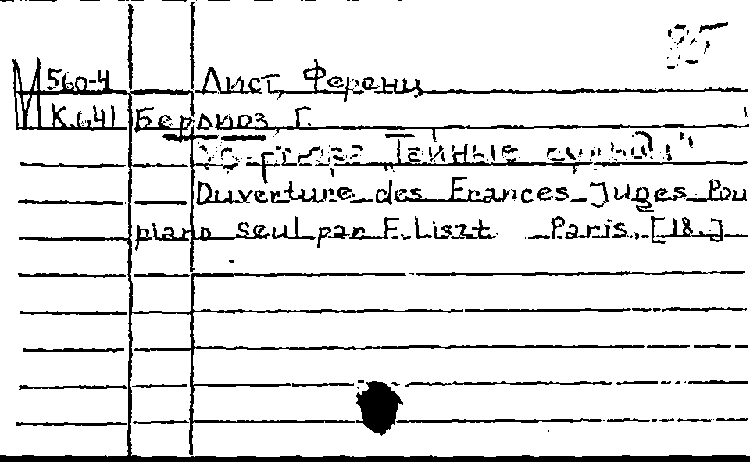 85
М 560-4 Лист, Ференц
К.641 Берлиоз, Г.
Увертюра „Тайные судьи"
Ouverture des Francs Juges Pou
piano seul par F. Liszt Paris, [18..]